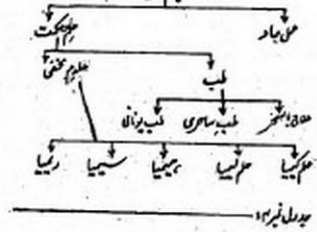 علم حکمت علی یاد
علوم مخفی طب
طب یونانی طب ساحری علاج السحر
ریمیا سیمیا ہیمیا علم لیمیا علم کیمیا
جدول نمبر ۱۳